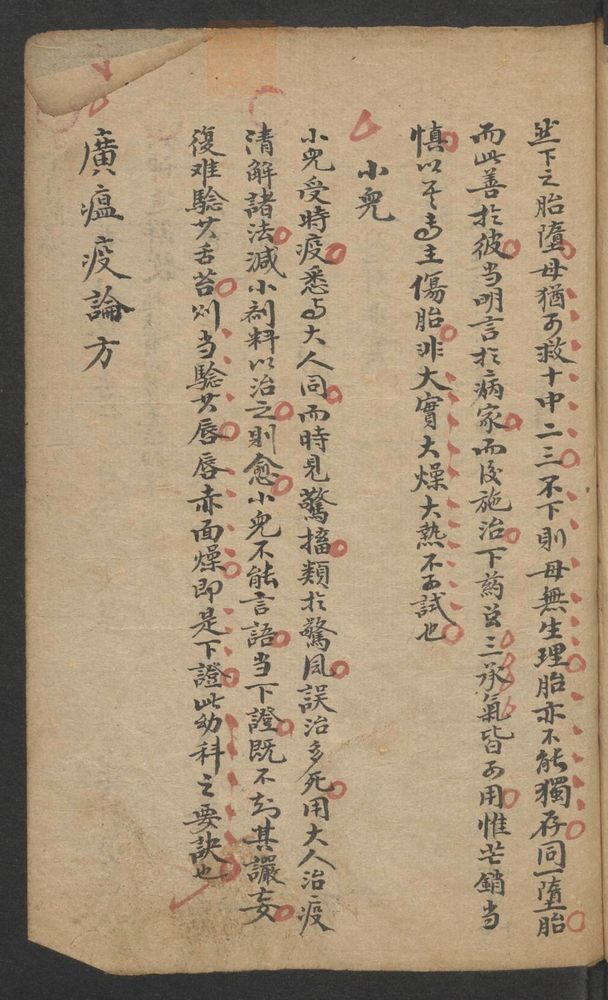 然下之胎墮母猶可救十中二三不下則母無生理胎亦不能獨存同一墮胎
而此善於彼当明言於病家而後施治下药首三承氣皆可用惟芒銷当
慎以其為主傷胎非大實大燥大熱不可試也
小兒
小兒受時疫悉与大人同而時見驚搐類於驚风誤治多死用大人治疫
清解諸法減小剂料以治之則愈小兒不能言語当下證既不知其讝妄
復难驗其舌苔则当驗其唇唇赤而燥即是下證此幼科之要訣也
廣瘟疫論方